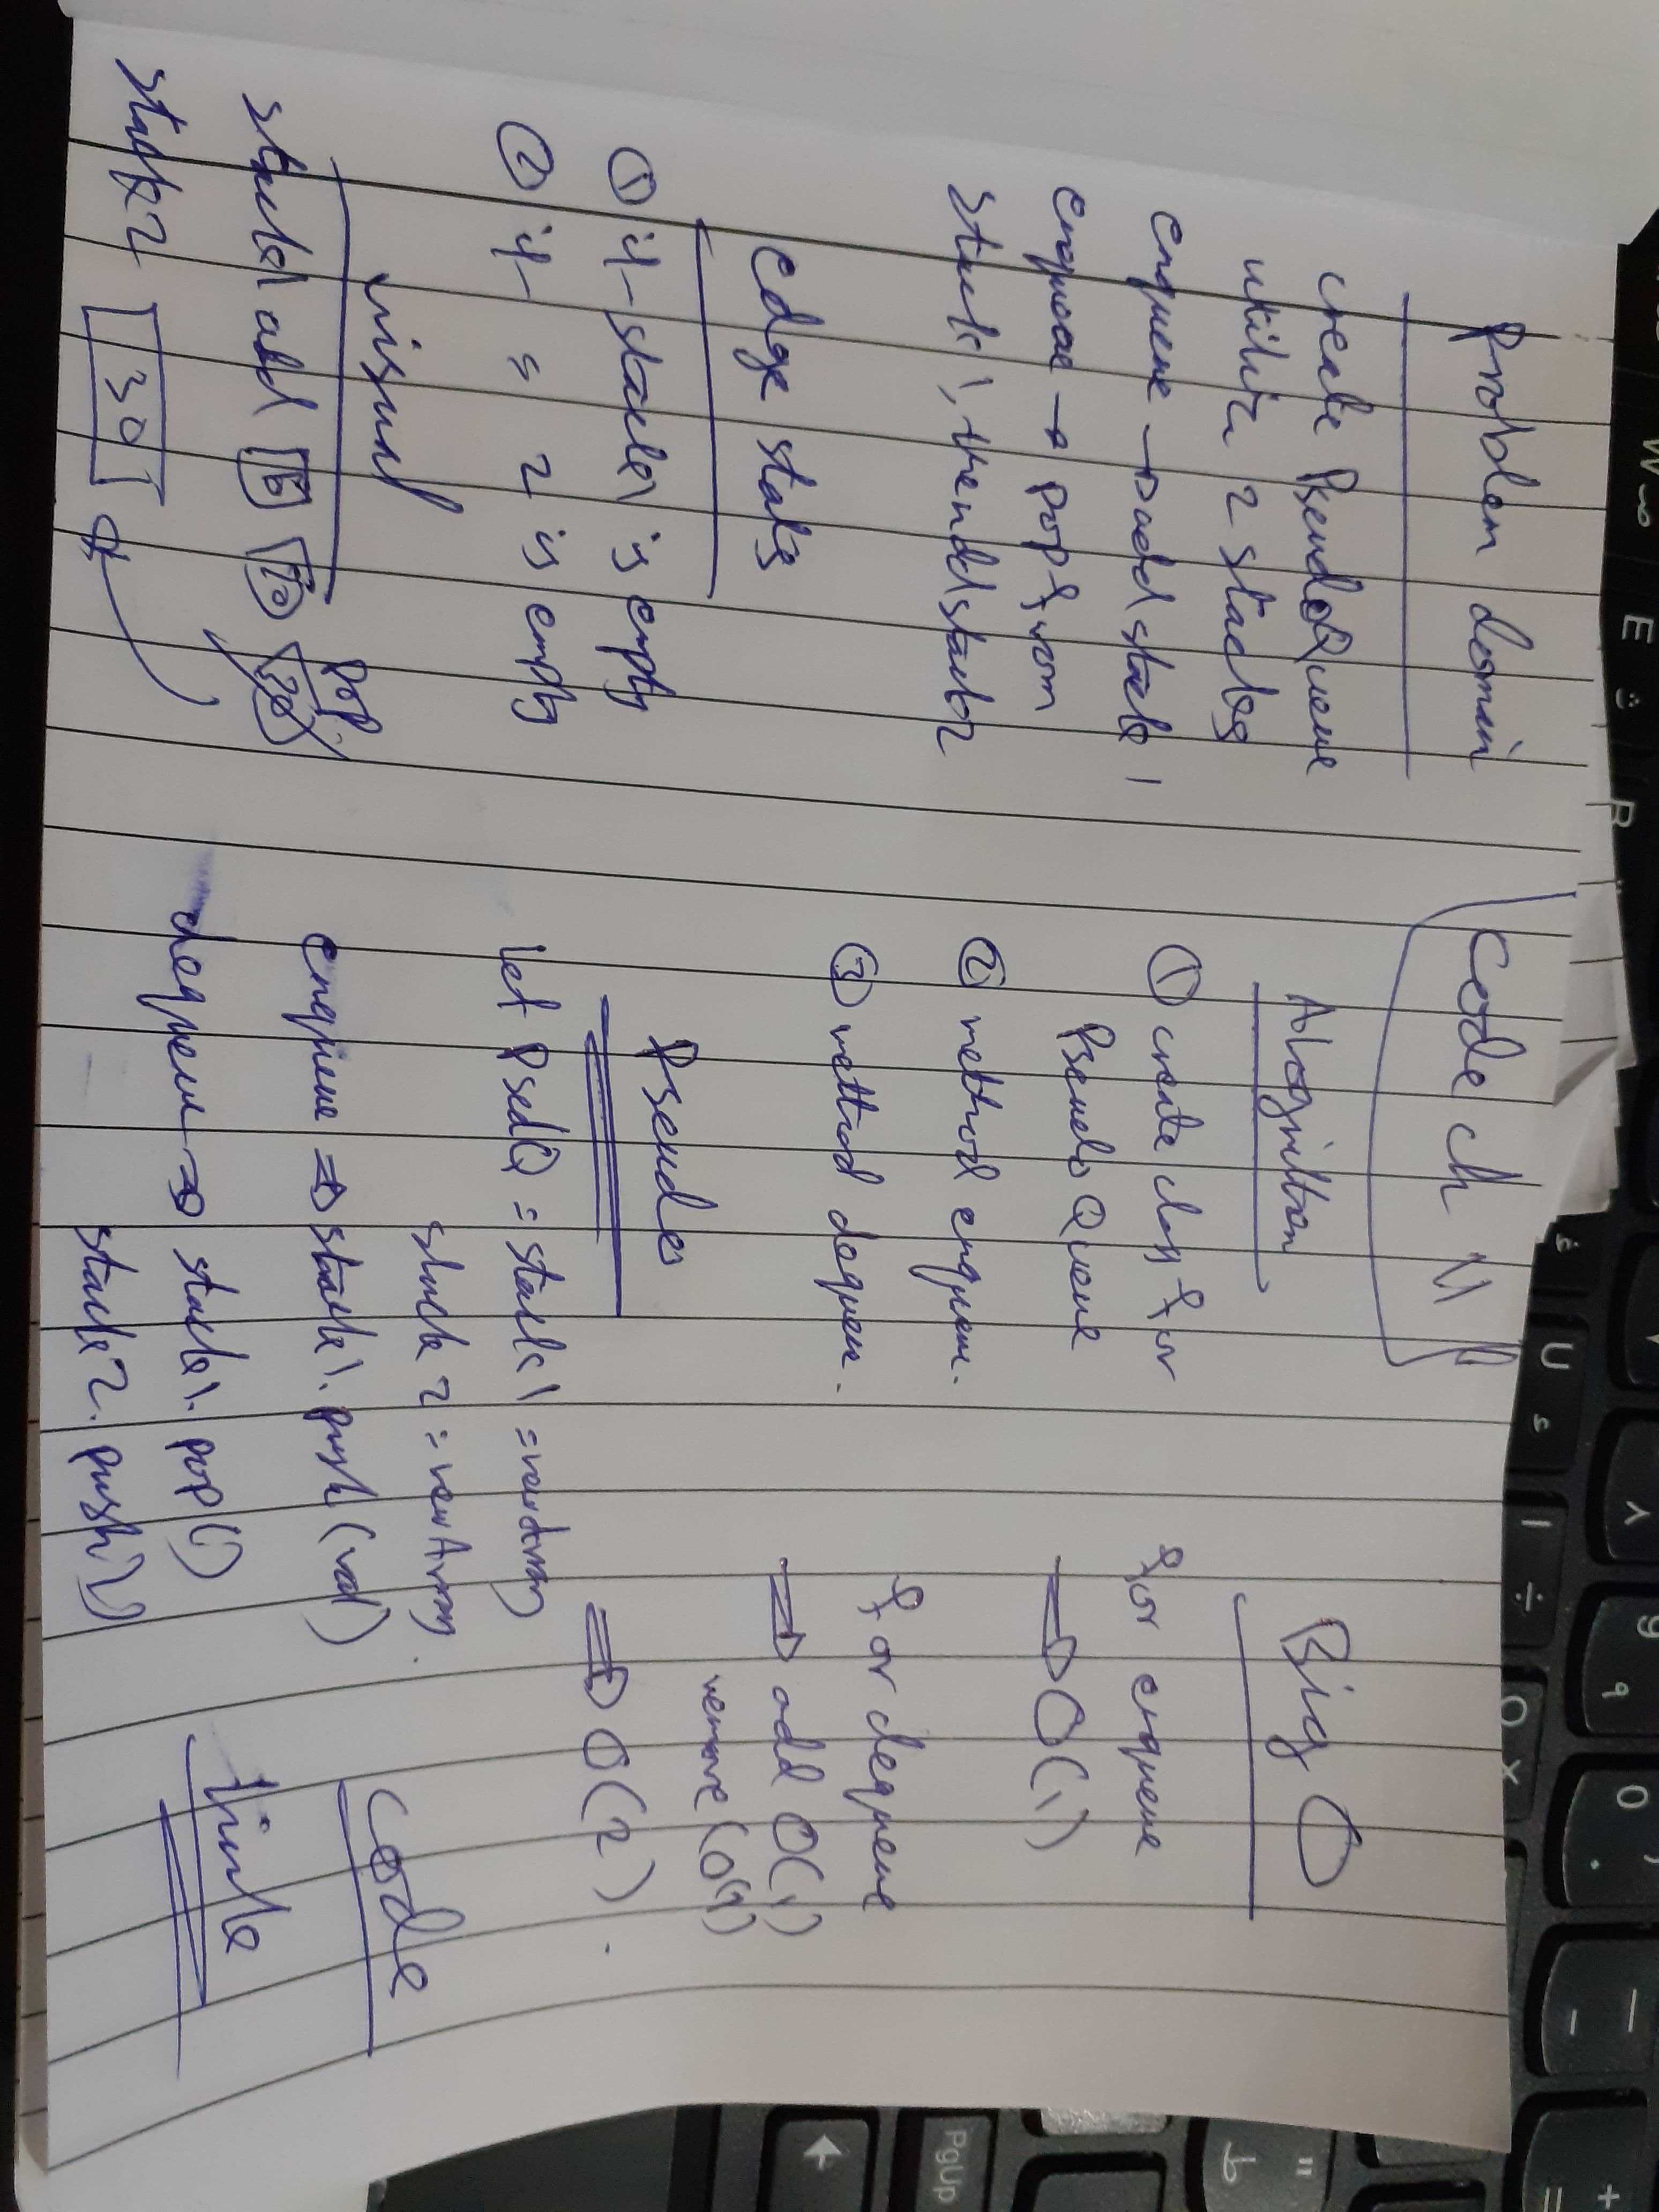 Code ch 11
Problem domain
create PseudoQueue
utilize 2 stackes
enqueue → add stack 1
enqueue → pop from
stack 1, then add stack 2
edge stats
① if stack 1 is empty
② if = 2 is empty
visual
stack1 add 15 20 30 pop
stack 2 30
Alogrithm
① create class for
Pseudo Queue
② method enqueu.
③ method dequeu.
Pseudo
let PsedQ = stack 1 = new Array
stack 2 = new Array
enqueue ⇒ stack 1. push (val)
dequeu → stack 1. pop()
stack 2. push()
Big O
for enqueue
⇒ O(1)
for dequeue
⇒ add O(1)
remove (O(1)
⇒ O(2).
code
link
W E R
U I O
PgUp